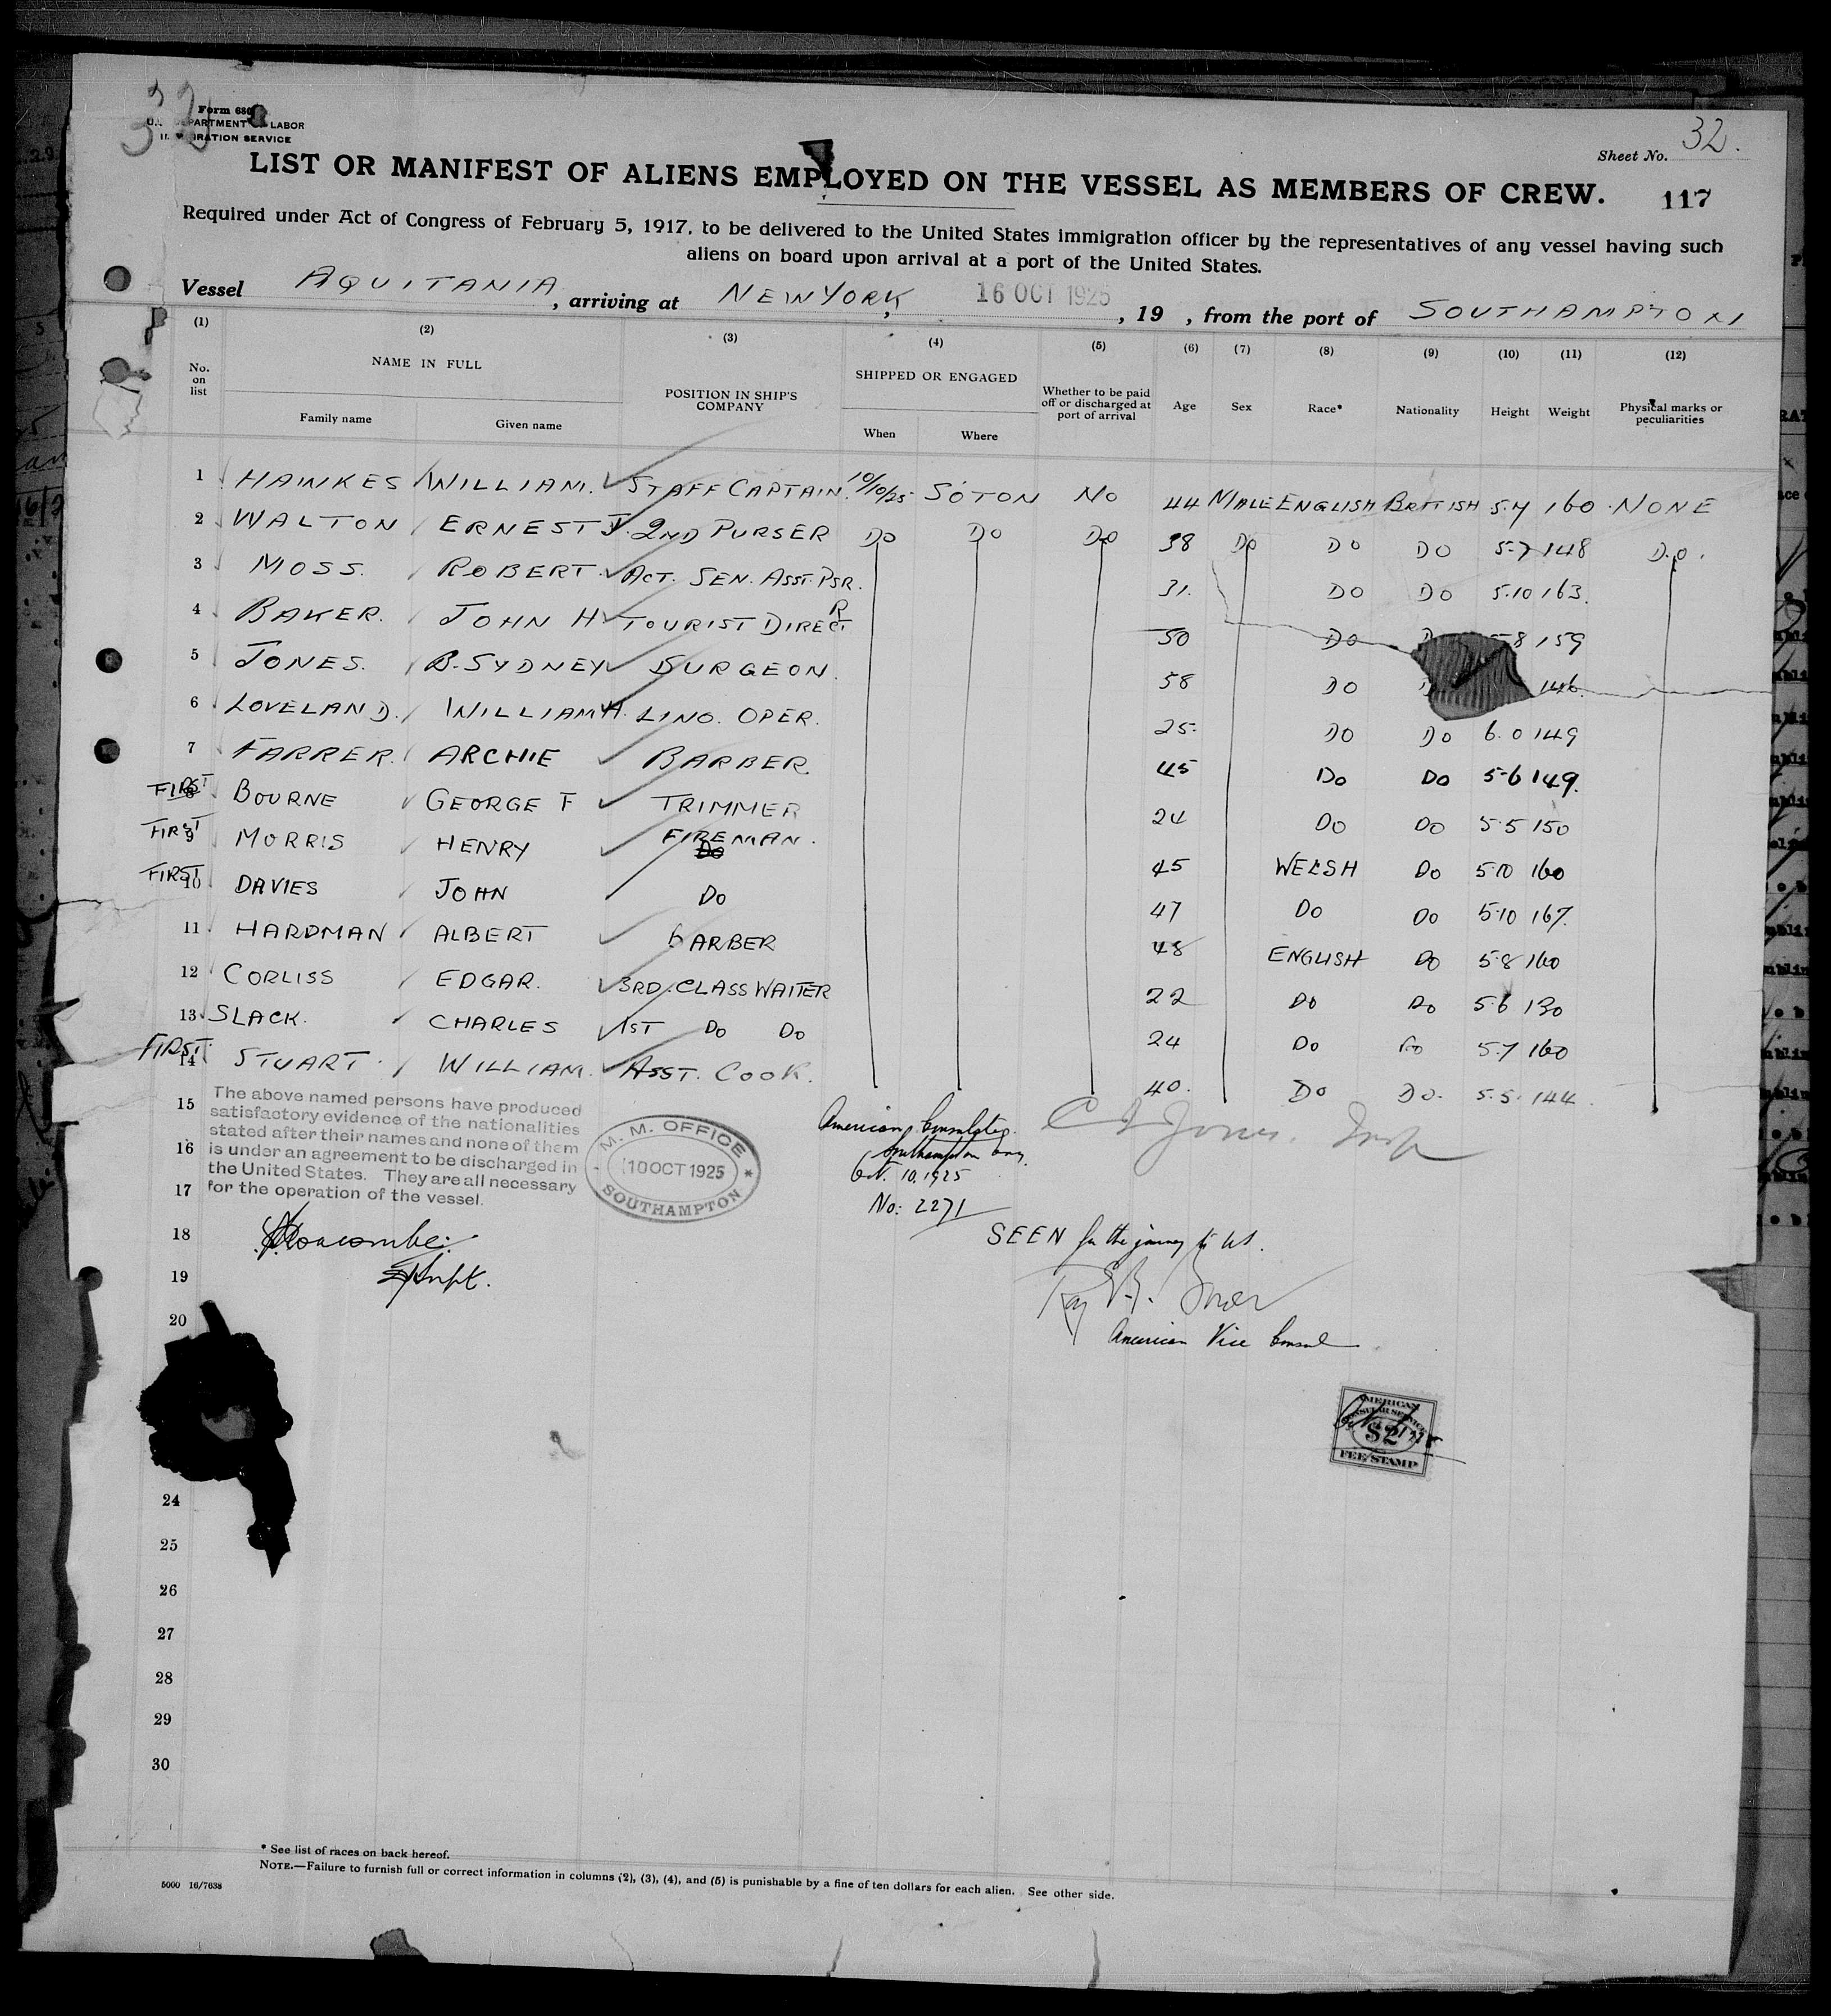 32
Form 680
U.S. DEPARTMENT OF LABOR
IMMIGRATION SERVICE
Sheet No. 32.
LIST OR MANIFEST OF ALIENS EMPLOYED ON THE VESSEL AS MEMBERS OF CREW. 117
Required under Act of Congress of February 5, 1917, to be delivered to the United States immigration officer by the representatives of any vessel having such
aliens on board upon arrival at a port of the United States.
Vessel AQUITANIA, arriving at NEW YORK, 16 OCT 1925, 19 , from the port of SOUTHAMPTON
(1) (2) (3) (4) (5) (6) (7) (8) (9) (10) (11) (12)
No. on list NAME IN FULL POSITION IN SHIP'S COMPANY SHIPPED OR ENGAGED Whether to be paid off or discharged at port of arrival Age Sex Race* Nationality Height Weight Physical marks or peculiarities
Family name Given name When Where
1 HAWKES WILLIAM. STAFF CAPTAIN. 10/10/25 SO'TON NO 44 MALE ENGLISH BRITISH 5.7 160 NONE
2 WALTON ERNEST J. 2ND PURSER DO DO DO 38 DO DO DO 5.7 148 DO.
3 MOSS. ROBERT. ACT. SEN. ASST. PSR. 31. DO DO 5.10 163.
4 BAKER. JOHN H TOURIST DIRECTR 50 DO 8 159
5 JONES. B. SYDNEY SURGEON. 58 DO 146.
6 LOVELAND. WILLIAM H. LINO. OPER. 25. DO DO 6.0 149
7 FARRER. ARCHIE BARBER. 45 DO DO 5.6 149.
FIRST 8 BOURNE GEORGE F TRIMMER 24 DO DO 5.5 150
FIRST 9 MORRIS HENRY FIREMAN. 45 WELSH DO 5.10 160
FIRST 10 DAVIES JOHN DO 47 DO DO 5.10 167.
11 HARDMAN ALBERT BARBER 48 ENGLISH DO 5.8 160
12 CORLISS EDGAR. 3RD. CLASS WAITER 22 DO DO 5.6 130
13 SLACK. CHARLES 1ST DO DO 24 DO DO 5.7 160
FIRST. 14 STUART. WILLIAM. ASST. COOK. 40. DO DO. 5.5. 144.
15
The above named persons have produced
satisfactory evidence of the nationalities
stated after their names and none of them
is under an agreement to be discharged in
the United States. They are all necessary
for the operation of the vessel.
M. M. OFFICE
10 OCT 1925
SOUTHAMPTON
American Consulate.
Southampton Eng.
Oct. 10, 1925
No: 2271
C Jones. Insp
16
17
18
Supt.
19
SEEN for the journey to U.S.
Roy
American Vice Consul
20
AMERICAN
CONSULAR SERVICE
$2
FEE STAMP
24
25
26
27
28
29
30
* See list of races on back hereof.
NOTE.—Failure to furnish full or correct information in columns (2), (3), (4), and (5) is punishable by a fine of ten dollars for each alien. See other side.
5000 16/7638